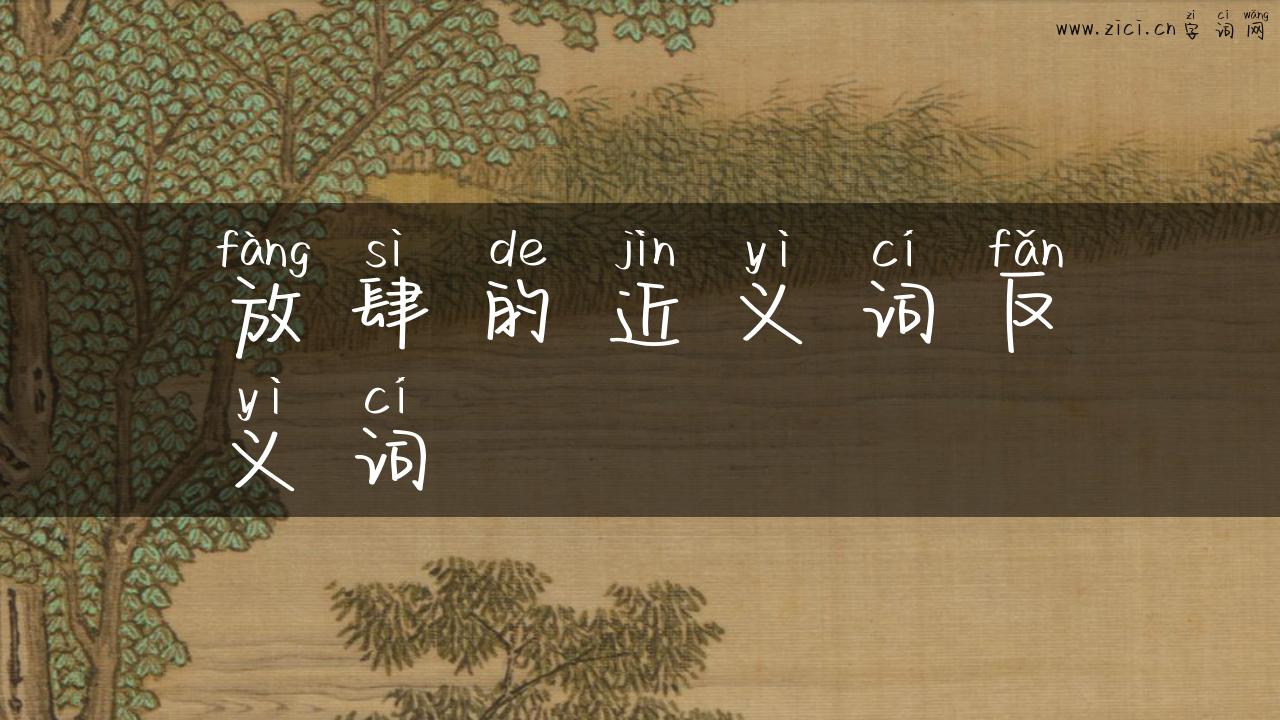 zì cí wǎng
www.zici.cn 字 词 网
fàng sì de jìn yì cí fǎn
放 肆 的 近 义 词 反
yì cí
义 词